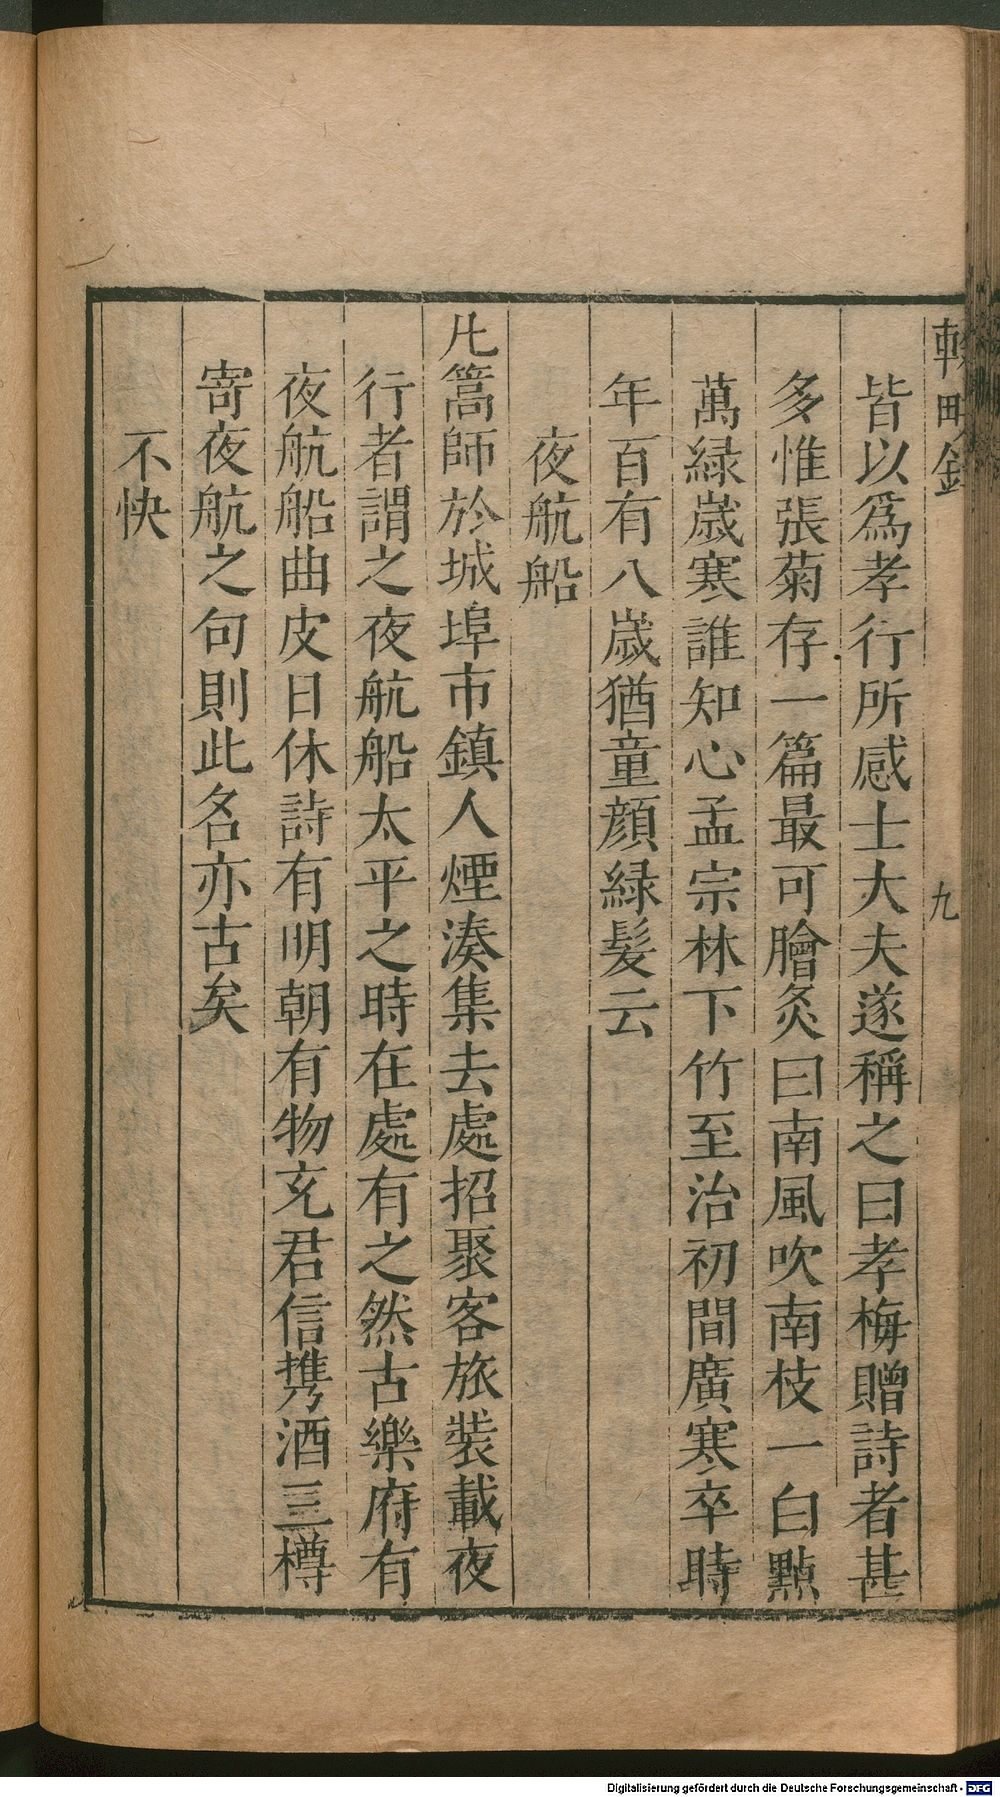 輟畊錄
九
皆以爲孝行所感士大夫遂稱之曰孝梅贈詩者甚
多惟張菊存一篇最可膾炙曰南風吹南枝一白點
萬緑歲寒誰知心孟宗林下竹至治初間廣寒卒時
年百有八歲猶童顔緑髮云
夜航船
凡篙師於城埠市鎮人煙湊集去處招聚客旅裝載夜
行者謂之夜航船太平之時在處有之然古樂府有
夜航船曲皮日休詩有明朝有物充君信携酒三樽
寄夜航之句則此名亦古矣
不快
Digitalisierung gefördert durch die Deutsche Forschungsgemeinschaft - DFG